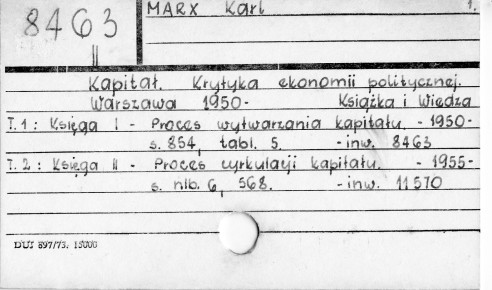 8463
II
MARX Karl
1.
Kapitał. Krytyka ekonomii politycznej.
Warszawa 1950- Książka i Wiedza
T.1: Księga I - Proces wytwarzania kapitału. - 1950-
s. 854, tabl. 5. - inw. 8463
T.2: Księga II - Proces cyrkulacji kapitału. - 1955-
s. nlb. 6, 568. - inw. 11570
DUJ 897/73. 15000